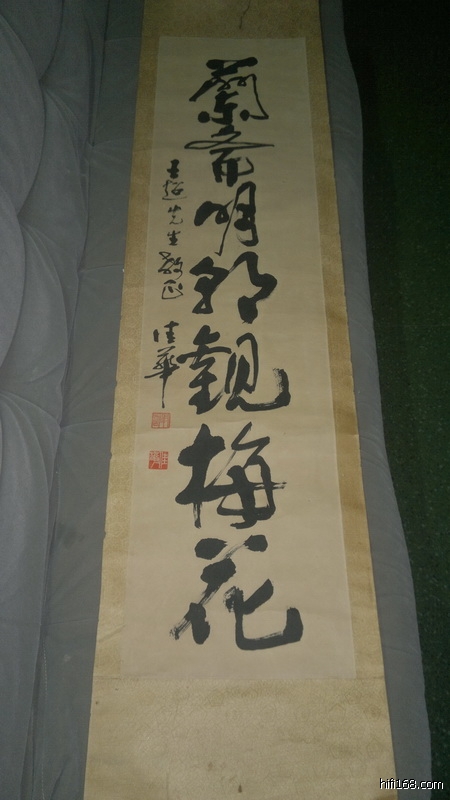 蘭齋明朝觀梅花
王超先生教正
佳華
hifi168.com